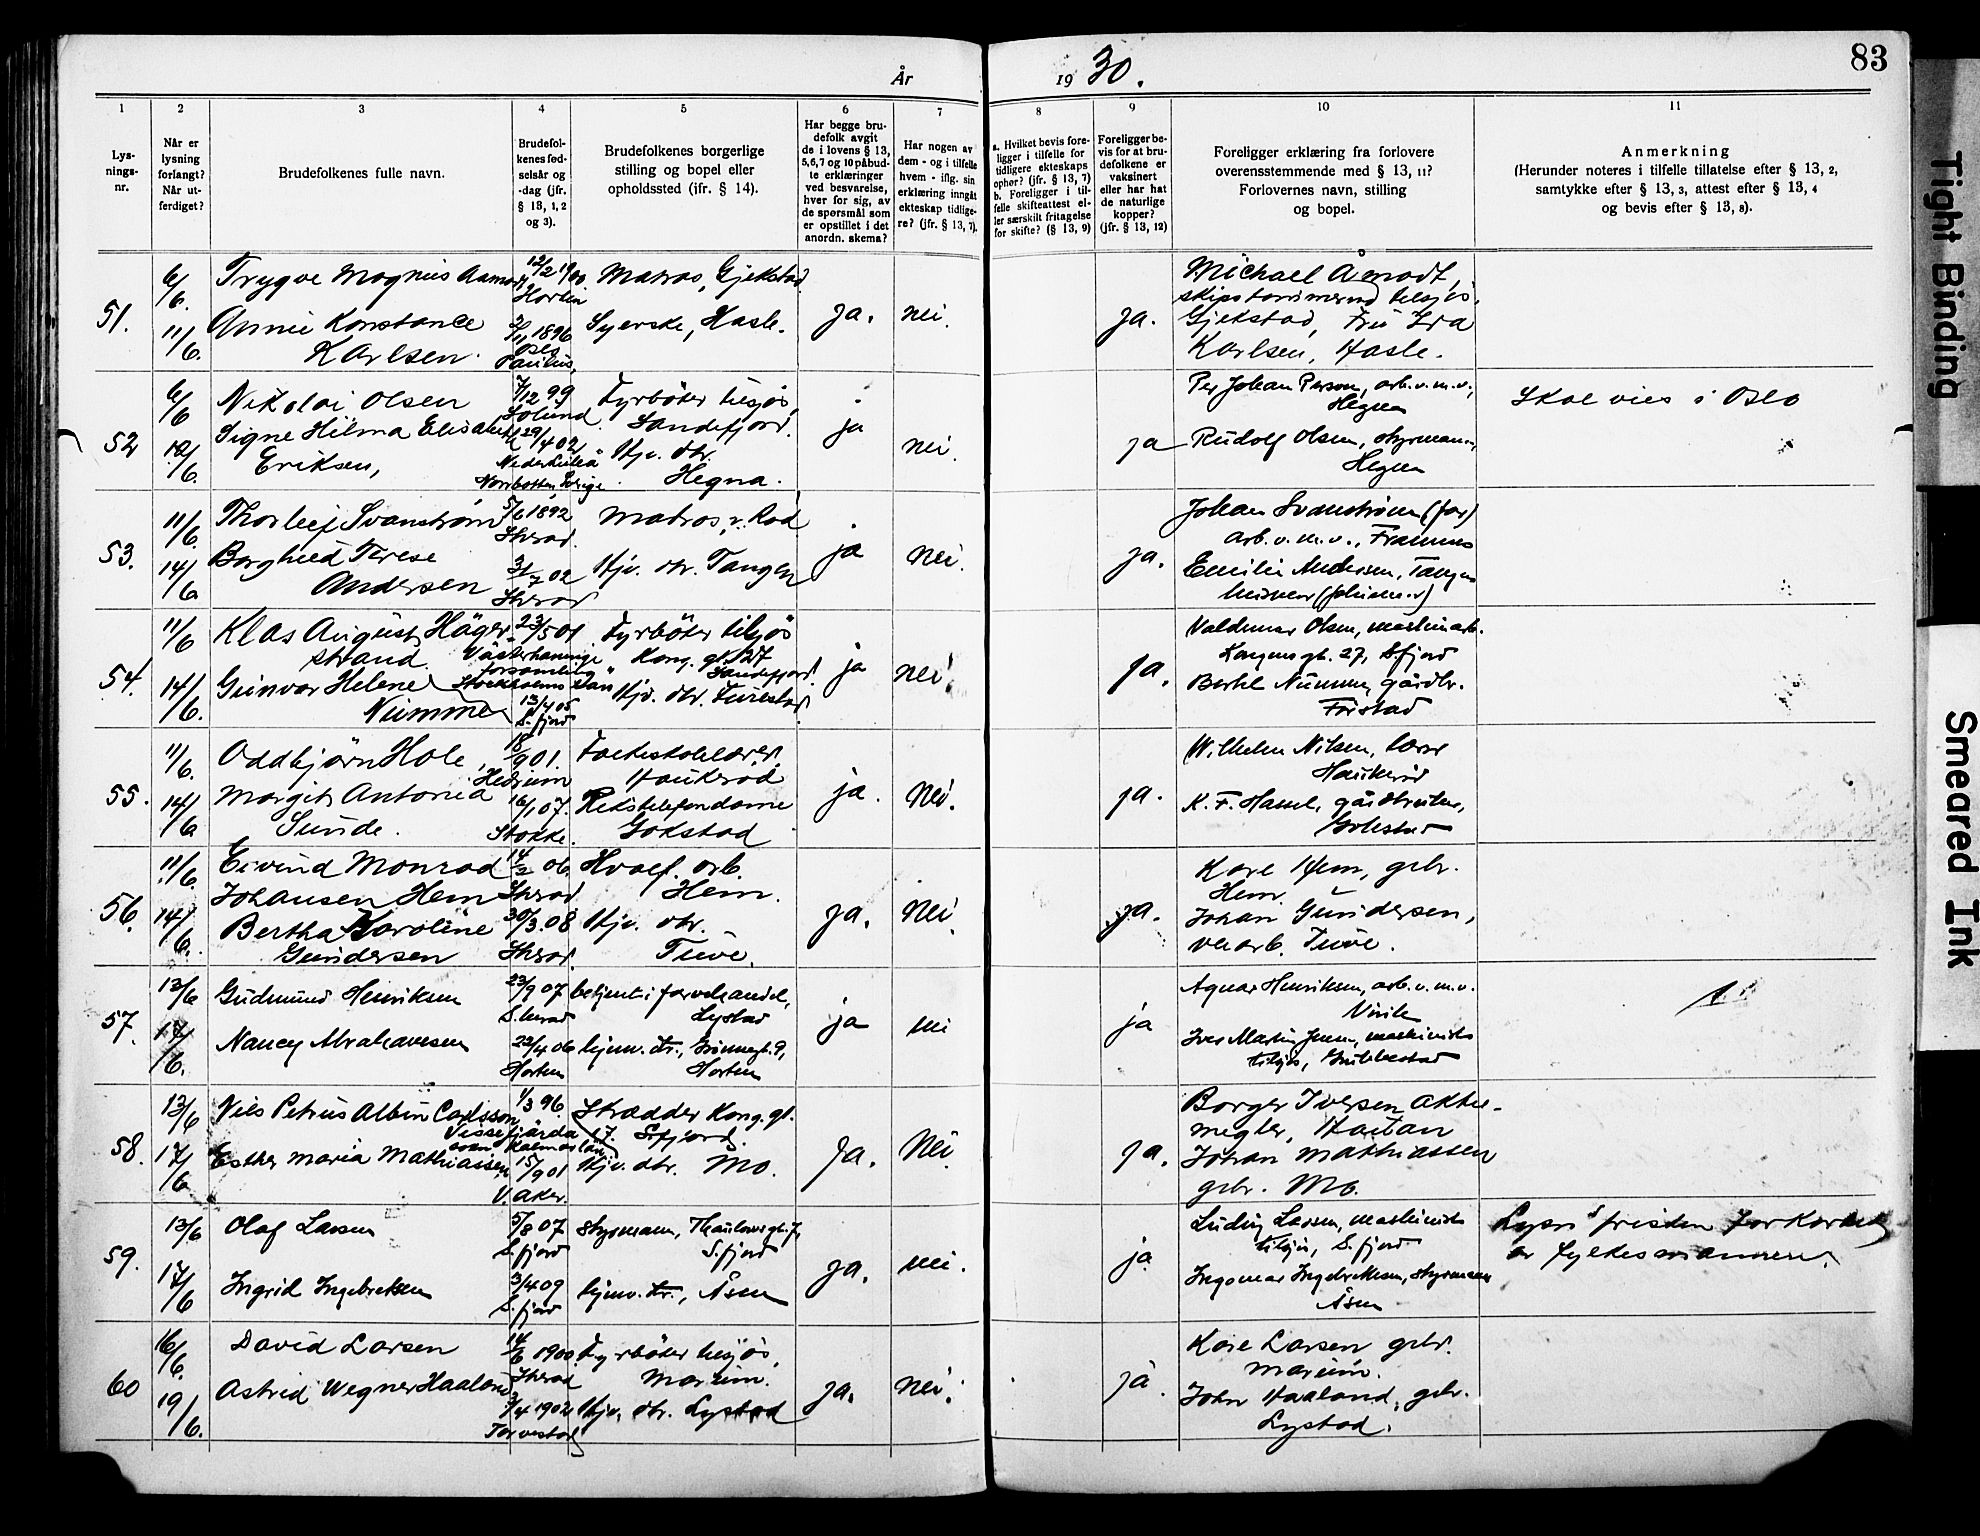 År 1930.
83
1 2 3 4 5 6 7 8 9 10 11
Lys-
nings-
nr.
Når er
lysning
forlangt?
Når ut-
ferdiget?
Brudefolkenes fulle navn.
Brudefol-
kenes fød-
selsår og
-dag (jfr.
§ 13, 1, 2
og 3).
Brudefolkenes borgerlige
stilling og bopel eller
opholdssted (ifr. § 14).
Har begge bru-
defolk avgit
de i lovens § 13,
5,6,7 og 10 påbud-
te erklæringer
ved besvarelse,
hver for sig, av
de spørsmål som
er opstillet i det
anordn. skema?
Har nogen av
dem - og i tilfelle
hvem - iflg. sin
erklæring inngåt
ekteskap tidlige-
re? (jfr. § 13, 7).
a. Hvilket bevis fore-
ligger i tilfelle for
tidligere ekteskaps
ophør? (jfr. § 13, 7)
b. Foreligger i til-
felle skifteattest el-
ler særskilt fritagelse
for skifte? (§ 13, 9)
Foreligger be-
vis for at bru-
defolkene er
vaksinert
eller har hat
de naturlige
kopper?
(jfr. § 13, 12)
Foreligger erklæring fra forlovere
overensstemmende med § 13, 11?
Forlovernes navn, stilling
og bopel.
Anmerkning
(Herunder noteres i tilfelle tillatelse efter § 13, 2,
samtykke efter § 13, 3, attest efter § 13, 4
og bevis efter § 13, 8).
51.
6/6.
11/6.
Trygve Magnus Aamodt
Annie Konstance
Karlsen.
12/2 1900.
Horten
2/11 1896
Oslo
Paulus.
Matros, Gjekstad.
Syerske, Hasle.
ja. nei. ja.
Michael Åmodt,
skipstømmermd tilsjøs.
Gjekstad, Fru Ida
Karlsen, Hasle.
52
6/6
12/6.
Nikolai Olsen
Signe Hilma Elisabeth
Eriksen,
7/12 99
Solund
29/4 02
Nederluleå
Norrbotten, Sverige
Fyrbøter tilsjøs,
Sandefjord.
Hjv. dtr.
Hegna.
ja nei. ja
Per Johan Person, arb. v. m. v.,
Hegna
Rudolf Olsen, styrmann,
Hegna
Skal vies i Oslo
53.
11/6.
14/6
Thorleif Svanstrøm
Borghild Terese
Andersen
5/6 1892
Sherad.
3/7 02
Sherad
Matros, v. Rød
Hjv. dtr. Tangen
ja nei. ja.
Johan Svanstrøm (far)
arb. v. m. v., Framnes
Emilie Andersen, Tangen
54.
11/6
14/6.
Klas August Häger-
strand.
Gunvor Helene
Numme
23/5 01
Västerhaninge
forsamling
Stockholms län
13/4 05
S.fjord
Fyrbøter tilsjøs
Kong. gt. 27
Sandefjord.
Hjv. dtr. Furustad
ja nei. ja.
Valdemar Olsen, maskinarb.
Kongensgt. 27, S.fjord
Bertel Numme, gårdbr.
Forstad
55.
11/6.
14/6
Oddbjørn Hole,
Margit Antonia
Sunde.
18/9 01.
Hedrum
16/1 07.
Stokke.
Folkeskolelærer.
Haukerød
Rikstelefondame
Gokstad
ja. nei. ja.
Wilhelm Nilsen, lærer
Haukerød
K. F. Hassel, gårdbruker,
Gokstad
56.
11/6.
14/6.
Eivind Monrad
Johansen Hem
Bertha Karoline
Gundersen
14/2 06.
Sherad.
30/3.08
Sherad.
Hvalf. arb.
Hem.
Hjv. dtr.
Tuve.
ja. nei. ja.
Kare Hem, gbr.
Hem.
Johan Gundersen,
veiarb. Tuve.
57.
13/6
17/6.
Gudmund Henriksen
Nancy Abrahamsen
23/9 07
S.herad
22/4 06
Horten
betjent i farvehandel,
Lystad
hjmv. dtr., Grønnegt. 9,
Horten
ja nei ja
Agnar Henriksen, arb. v. m. v.
Virik
Iver Martin Jensen, maskinist
tilsjøs, Gubbestad
58.
13/6
17/6
Nils Petrus Albin Carlsson
Esther Maria Mathiassen
1/3 96.
Vissefjärda
Kalmar län
15/9 01
V. Aker.
Skrædder Kong. gt.
17. S.fjord.
Hjv. dtr. Mo.
ja. nei ja.
Borger Iversen Aktu-
megler, Haitan
Johan Mathiassen
gbr. Mo.
59.
13/6
17/6
Olaf Larsen
Ingrid Ingebretsen
5/8 07
S.fjord
3/4 09
S.fjord
styrmann, Thaulowsgt. 7,
S.fjord
hjmv. dtr., Åsen
ja. nei. ja
Ludvig Larsen, maskinist
tilsjøs, S.fjord
Ingomar Ingebretsen, styrmann
Åsen
Lysn.s fristen forkortet
av fylkesmannen.
60
16/6.
19/6.
David Larsen
Astrid Wegner Haaland
14/6 1900.
Sherad
3/4 1902
Torvestad
Fyrbøter tilsjøs,
Marum.
Hjv. dtr. Lystad
ja. nei. ja.
Kare Larsen gbr.
Marum.
John Haaland, gbr.
Lystad.
Tight Binding
Smeared Ink